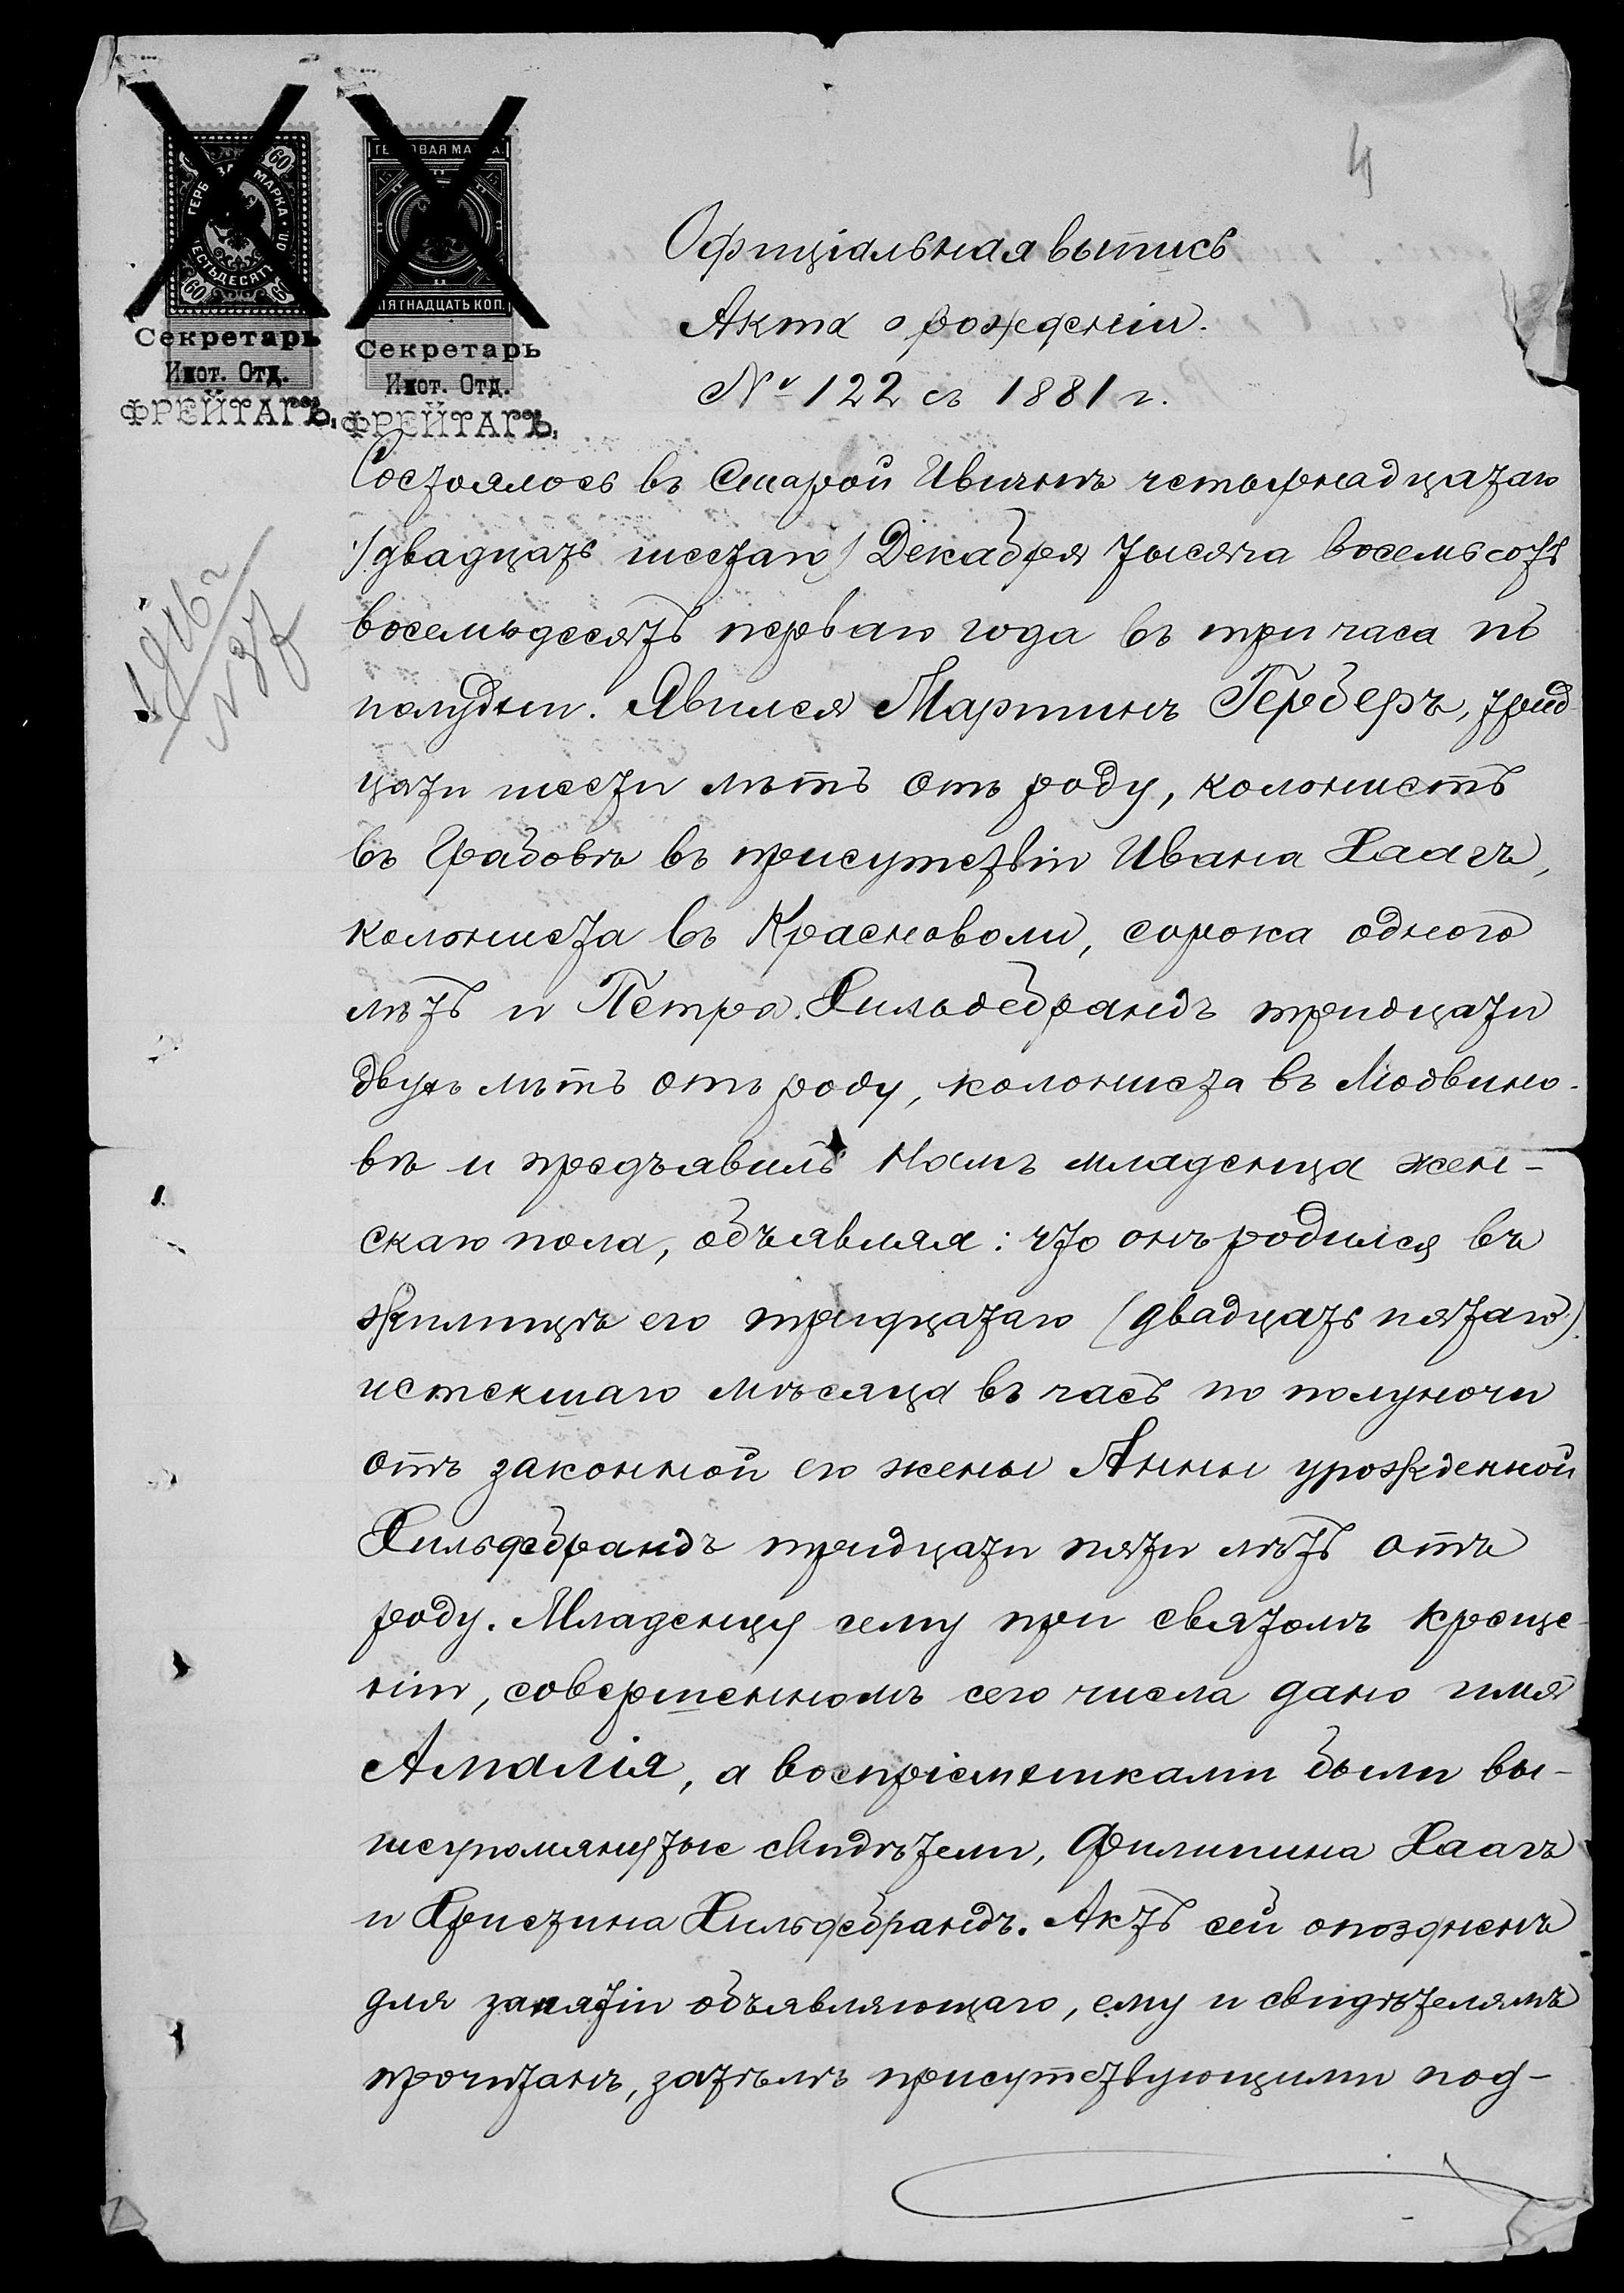 4
ГЕРБОВАЯ МАРКА
60
ШЕСТЬДЕСЯТЪ
ГЕРБОВАЯ МАРКА.
ПЯТНАДЦАТЬ КОП.
Секретарь
Инот. Отд.
ФРЕЙТАГЪ.
Секретарь
Инот. Отд.
ФРЕЙТАГЪ.
Офиціальная выпись
Акта о рожденіи.
№ 122 съ 1881 г.
Состоялось въ Старой Ивичнѣ четырнадцатаго
/двадцать шестаго/ Декабря тысяча восемьсотъ
восемьдесятъ перваго года въ три часа по
полудни. Явился Мартинъ Герберъ, трид
цати шести лѣтъ отъ роду, колонистъ
въ Грабовѣ въ присутствіи Ивана Хаагъ,
колониста въ Красноволи, сорока одного
лѣтъ и Петра Хильдебрандъ тридцати
двухъ лѣтъ отъ роду, колониста въ Людвино-
вѣ и предъявилъ Намъ младенца жен-
скаго пола, объявляя: что онъ родился въ
жилищѣ его тридцатаго (двадцать пятаго)
истекшаго мѣсяца въ часъ по полуночи
отъ законной его жены Анны урожденной
Хильдебрандъ тридцати пяти лѣтъ отъ
роду. Младенцу сему при святомъ креще-
ніи, совершенномъ сего числа дано имя
Амалія, а воспріемниками были вы-
шеупомянутые свидѣтели, Филипина Хаагъ
и Христина Хильдебрандъ. Актъ сей опоздненъ
для занятіи объявляющаго, ему и свидѣтелямъ
прочитанъ, затѣмъ присутствующими под-